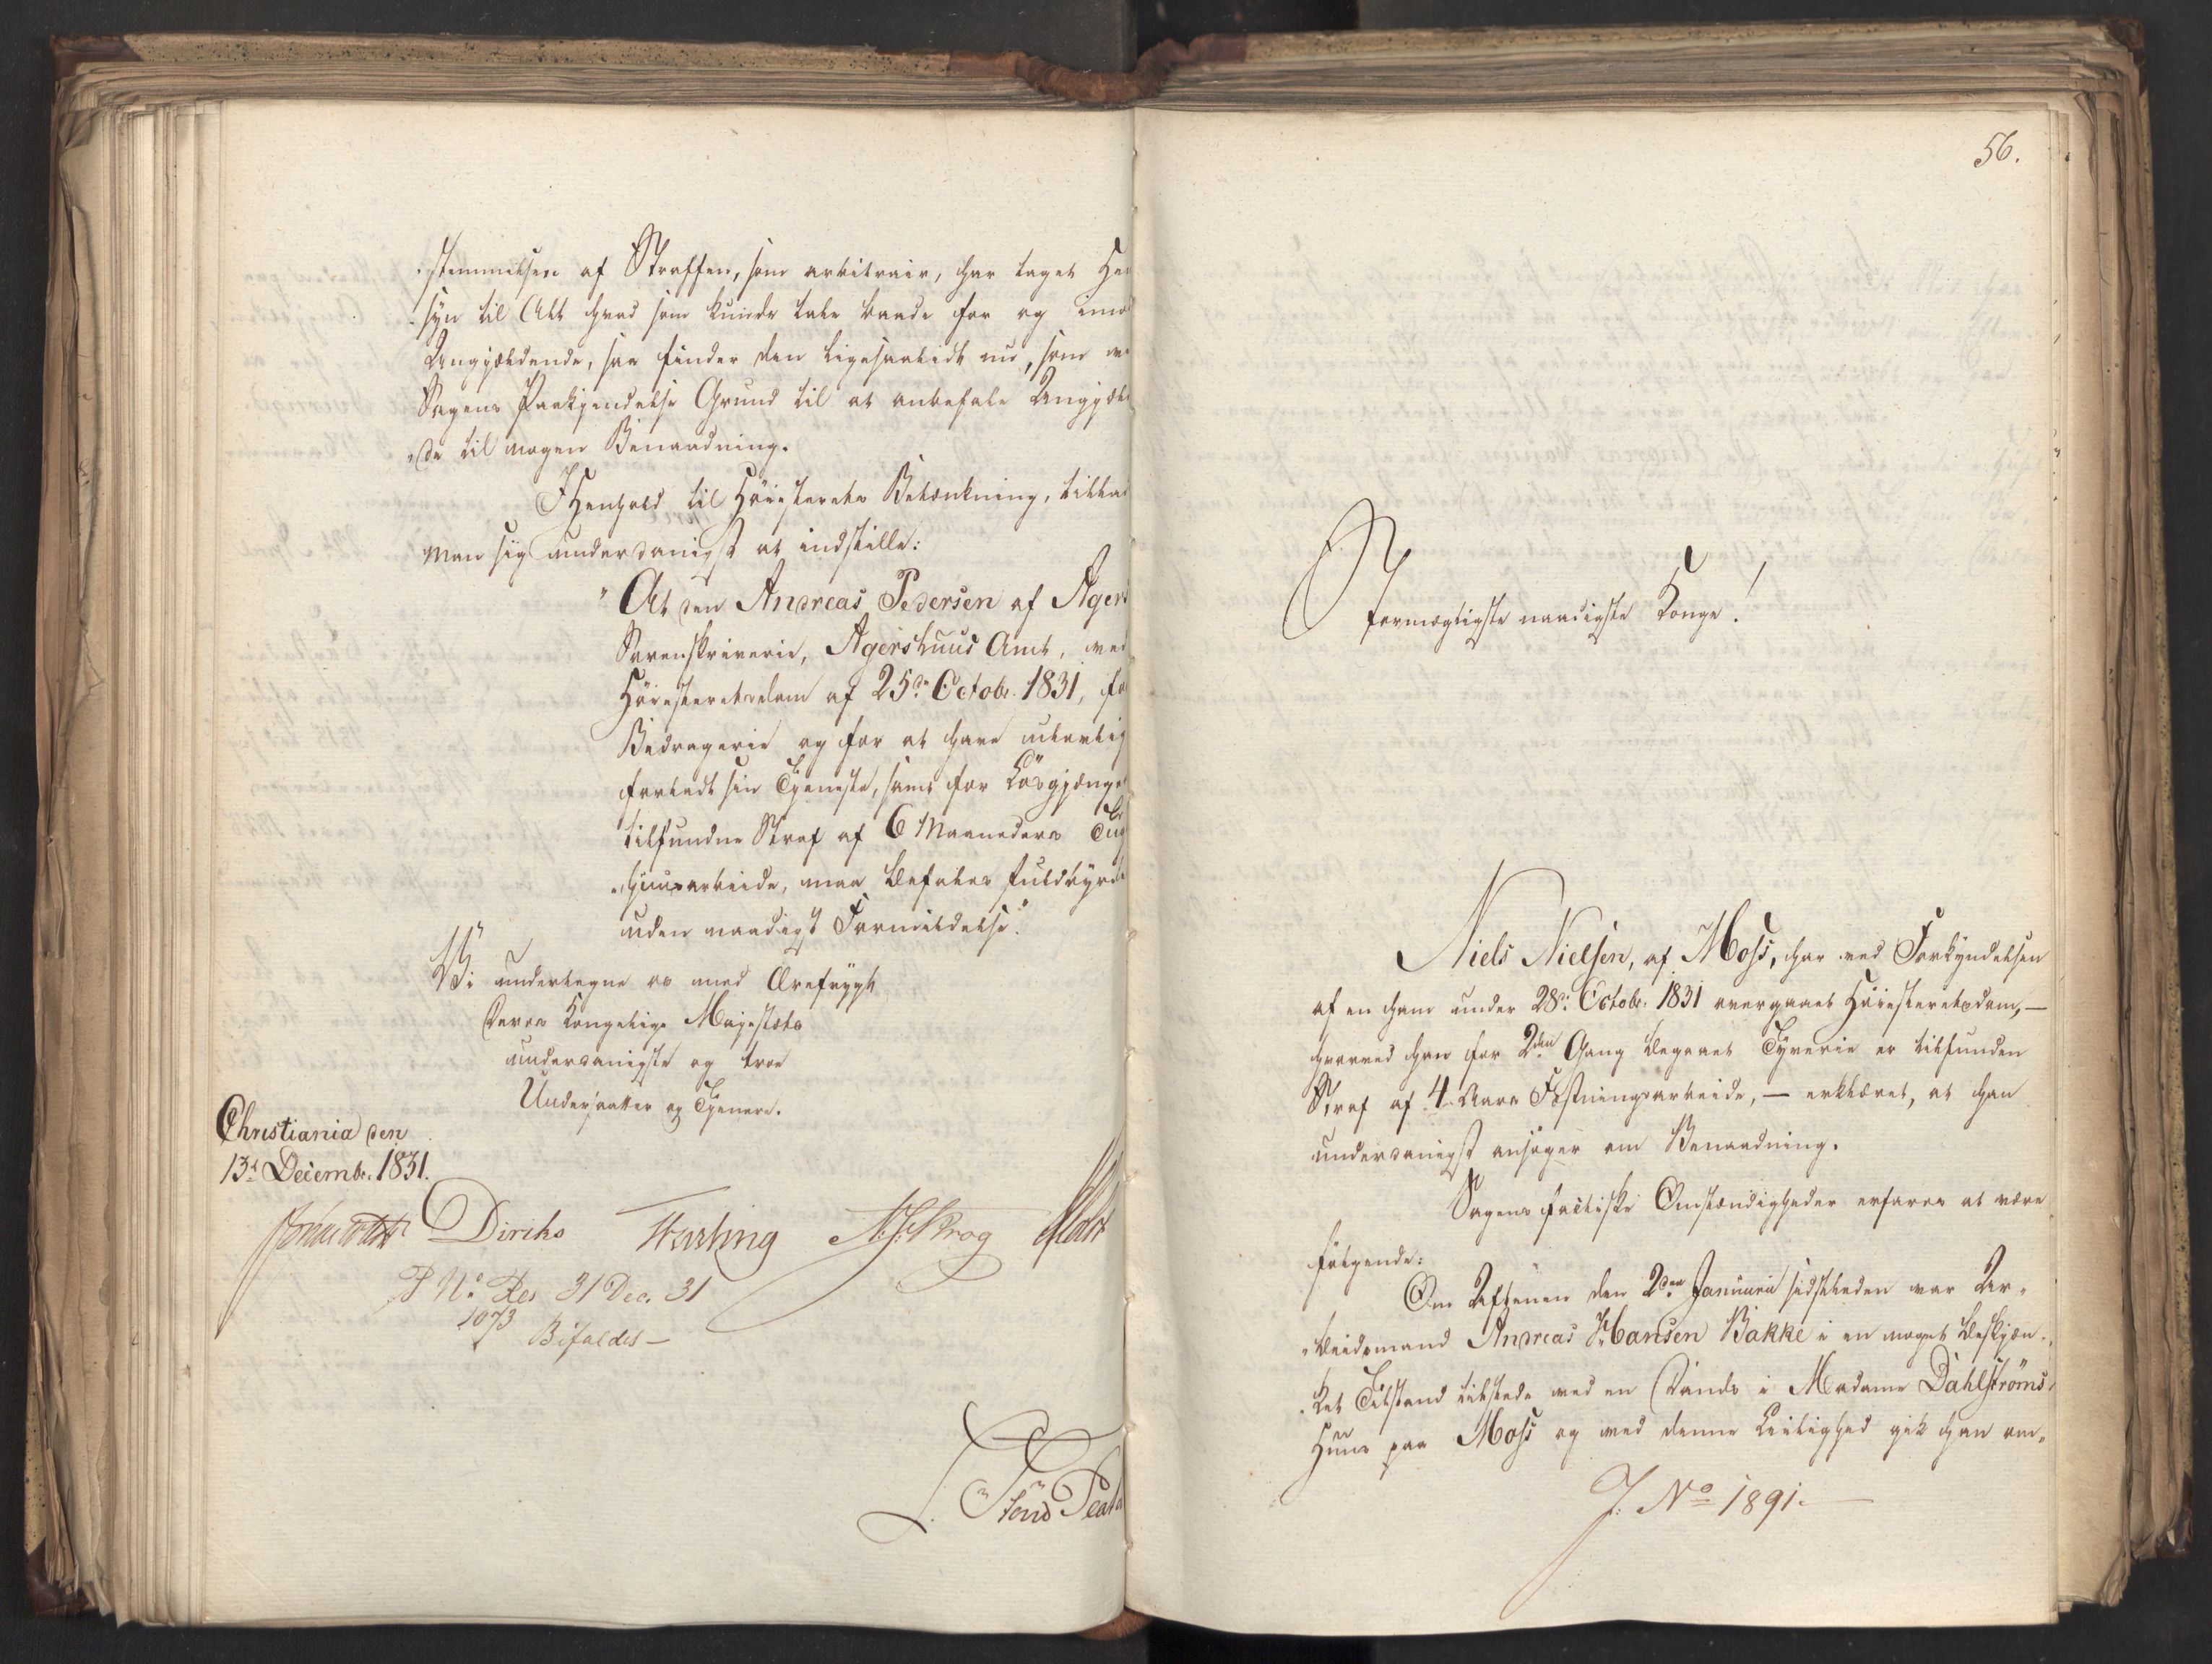 stemmelsen af Straffen, som arbitrair, har taget Hen
syn til Alt hvad som kunde tale baade for og imod
Angjældende, saa finder den ligesaalidt nu, som ved
Sagens Paakjendelse Grund til at anbefale Angjæld
"de til nogen Benaadning.
I Henhold til Høiesterets Betænkning, tillad
man sig underdanigst at indstille:
"At den Andreas Pedersen af Agers
Sorenskriverie, Agershuus Amt, ved
Høiesteretsdom af 25de Octobr. 1831, for
Bedragerie og for at have ulovlig
forladt sin Tjeneste, samt for Løsgjænge
tilfundne Straf af 6 Maaneders Tug
"huusarbeide, maa befales fuldbyrdet
uden naadigst Formildelse."
Vi undertegne os med Ærefrygt
Deres Kongelige Majestæts
underdanigste og troe
Undersaatter og Tjenere.
Christiania den
13d Decembr. 1831.
Diriks N. J. Krog
P No Res 31 Dec. 31
1073
Bifaldes —
56.
Stormægtigste naadigste Konge!
Niels Nielsen, af Moss, har ved Forkyndelsen
af en ham under 28de Octobr. 1831 overgaaet Høiesteretsdom, —
hvorved han for 2den Gang begaaet Tyverie er tilfunden
Straf af 4 Aars Fæstningsarbeide, — erklæret, at han
underdanigst ansøger om Benaadning.
Sagens factiske Omstændigheder erfares at være
følgende:
Om Aftenen den 2den Januarii sidstleden var Ar-
"beidsmand Andreas Hansen Bakke i en noget beskjæn-
"ket Tilstand tilstede ved en Dands i Madame Dahlströms
Huus paa Moss og ved denne Leilighed gik han om-
J. No 1891. —